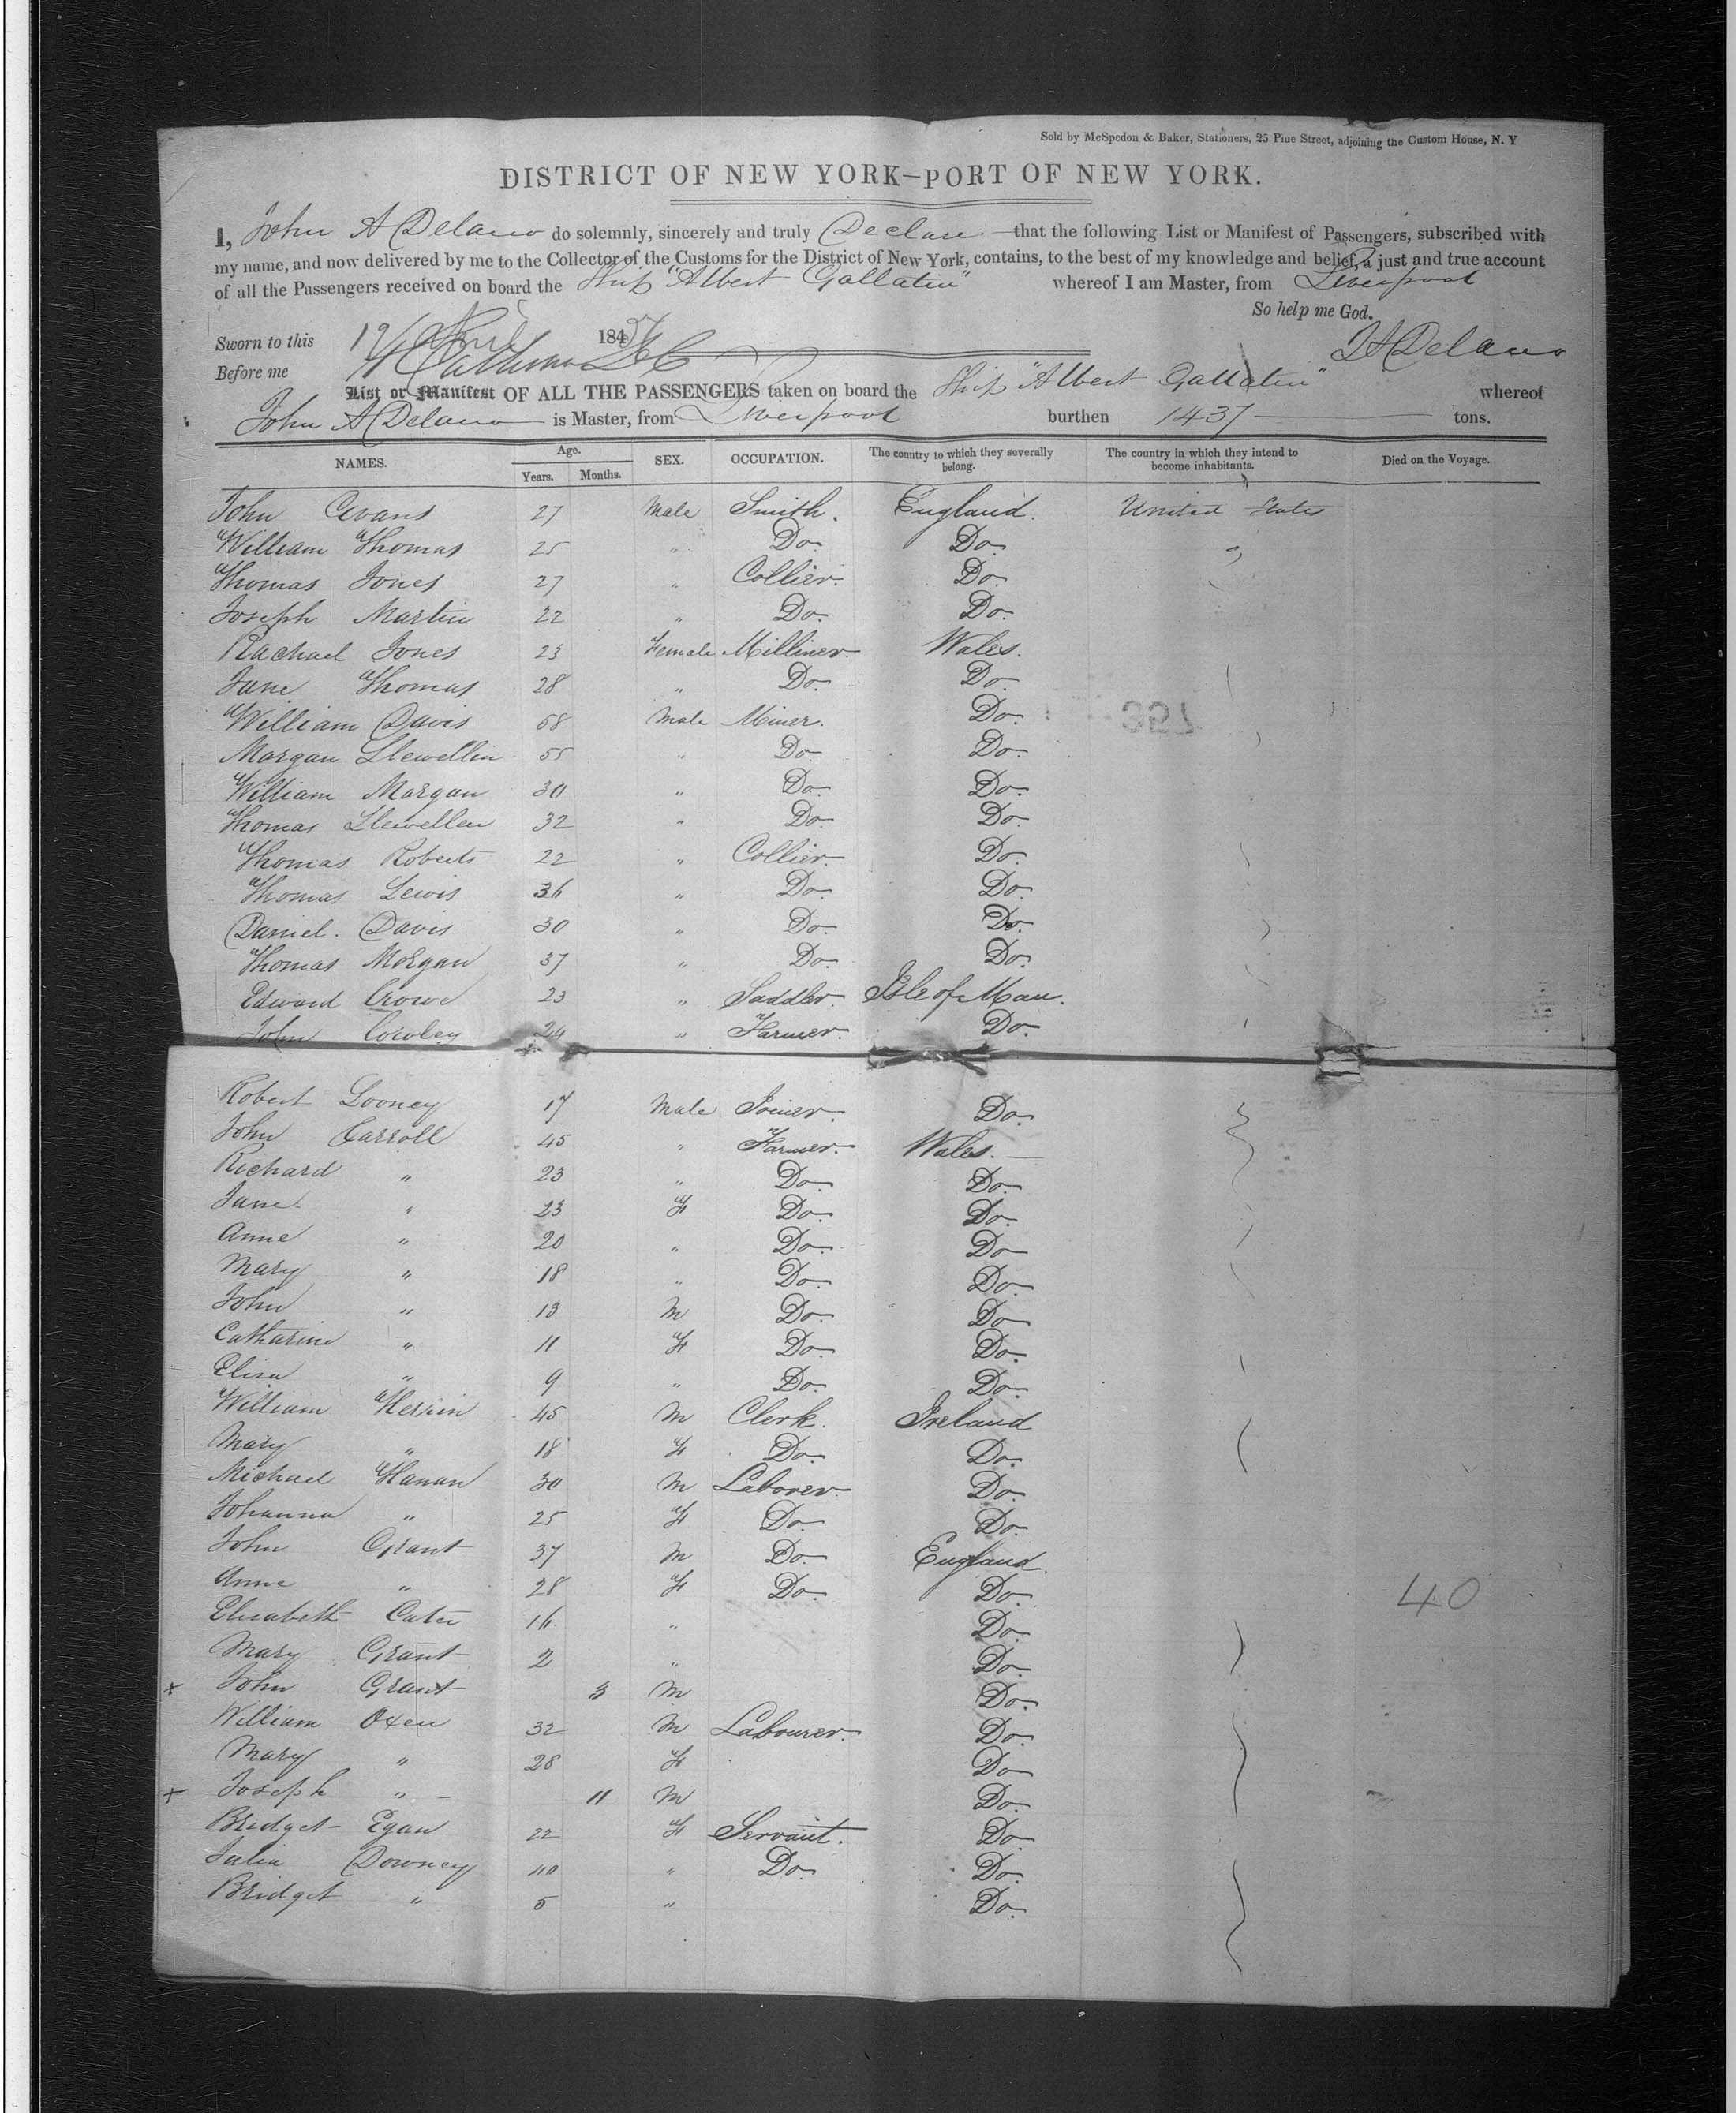 Sold by McSpedon & Baker, Stationers, 25 Pine Street, adjoining the Custom House, N. Y
DISTRICT OF NEW YORK—PORT OF NEW YORK.
I, John A Delano do solemnly, sincerely and truly Declare that the following List or Manifest of Passengers, subscribed with
my name, and now delivered by me to the Collector of the Customs for the District of New York, contains, to the best of my knowledge and belief, a just and true account
of all the Passengers received on board the Ship "Albert Gallatin" whereof I am Master, from Liverpool
So help me God.
Sworn to this 19 April 185 JA Delano
Before me
List or Manifest OF ALL THE PASSENGERS taken on board the Ship "Albert Gallatin" whereof
John A Delano is Master, from Liverpool burthen 1437 tons.
NAMES. Age. Years. Months. SEX. OCCUPATION. The country to which they severally belong. The country in which they intend to become inhabitants. Died on the Voyage.
John Evans 27 Male Smith. England. United States
William Thomas 25 " Do. Do. "
Thomas Jones 27 " Collier. Do.
Joseph Martin 22 " Do. Do.
Rachael Jones 23 Female Milliner Wales.
Jane Thomas 28 " Do. Do.
William Davis 58 Male Miner. Do.
Morgan Llewellin 55 " Do Do.
William Morgan 30 " Do. Do.
Thomas Llewellen 32 " Do. Do.
Thomas Roberts 22 " Collier. Do.
Thomas Lewis 36 " Do Do.
Daniel. Davis 30 " Do. Do.
Thomas Morgan 37 " Do. Do.
Edward Crowe 23 " Saddler. Isle of Man.
John Cowley 24 " Farmer. Do.
Robert Looney 17 Male Joiner. Do.
John Carroll 45 " Farmer. Wales.
Richard " 23 " Do. Do.
Jane " 23 F Do. Do.
Anne " 20 " Do. Do
Mary " 18 " Do. Do.
John " 13 M Do. Do
Catharine " 11 F Do. Do.
Elisa " 9 " Do. Do.
William Herrin 45 M Clerk. Ireland
Mary " 18 F Do. Do.
Michael Hanan 30 M Laborer Do.
Johanna " 25 F Do. Do.
John Grant 37 M Do. England.
Anne " 28 F Do. Do. 40
Elisabeth Cater 16 " Do.
Mary Grant 2 " Do.
x John Grant 3 M Do.
William Oxen 32 M Labourer. Do.
Mary " 28 F Do
x Joseph " 11 M Do.
Bridget Egan 22 F Servant. Do.
Julia Downey 40 " Do. Do.
Bridget " 5 " Do.